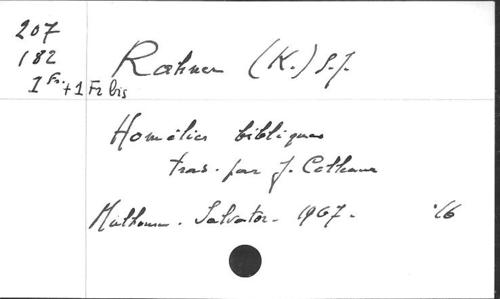 207
182
1 Fr. + 1 Fr bis
Rahner (K.) S.J.
Homélies bibliques
trad. par J.
Mulhouse. Salvator. 1967. '66